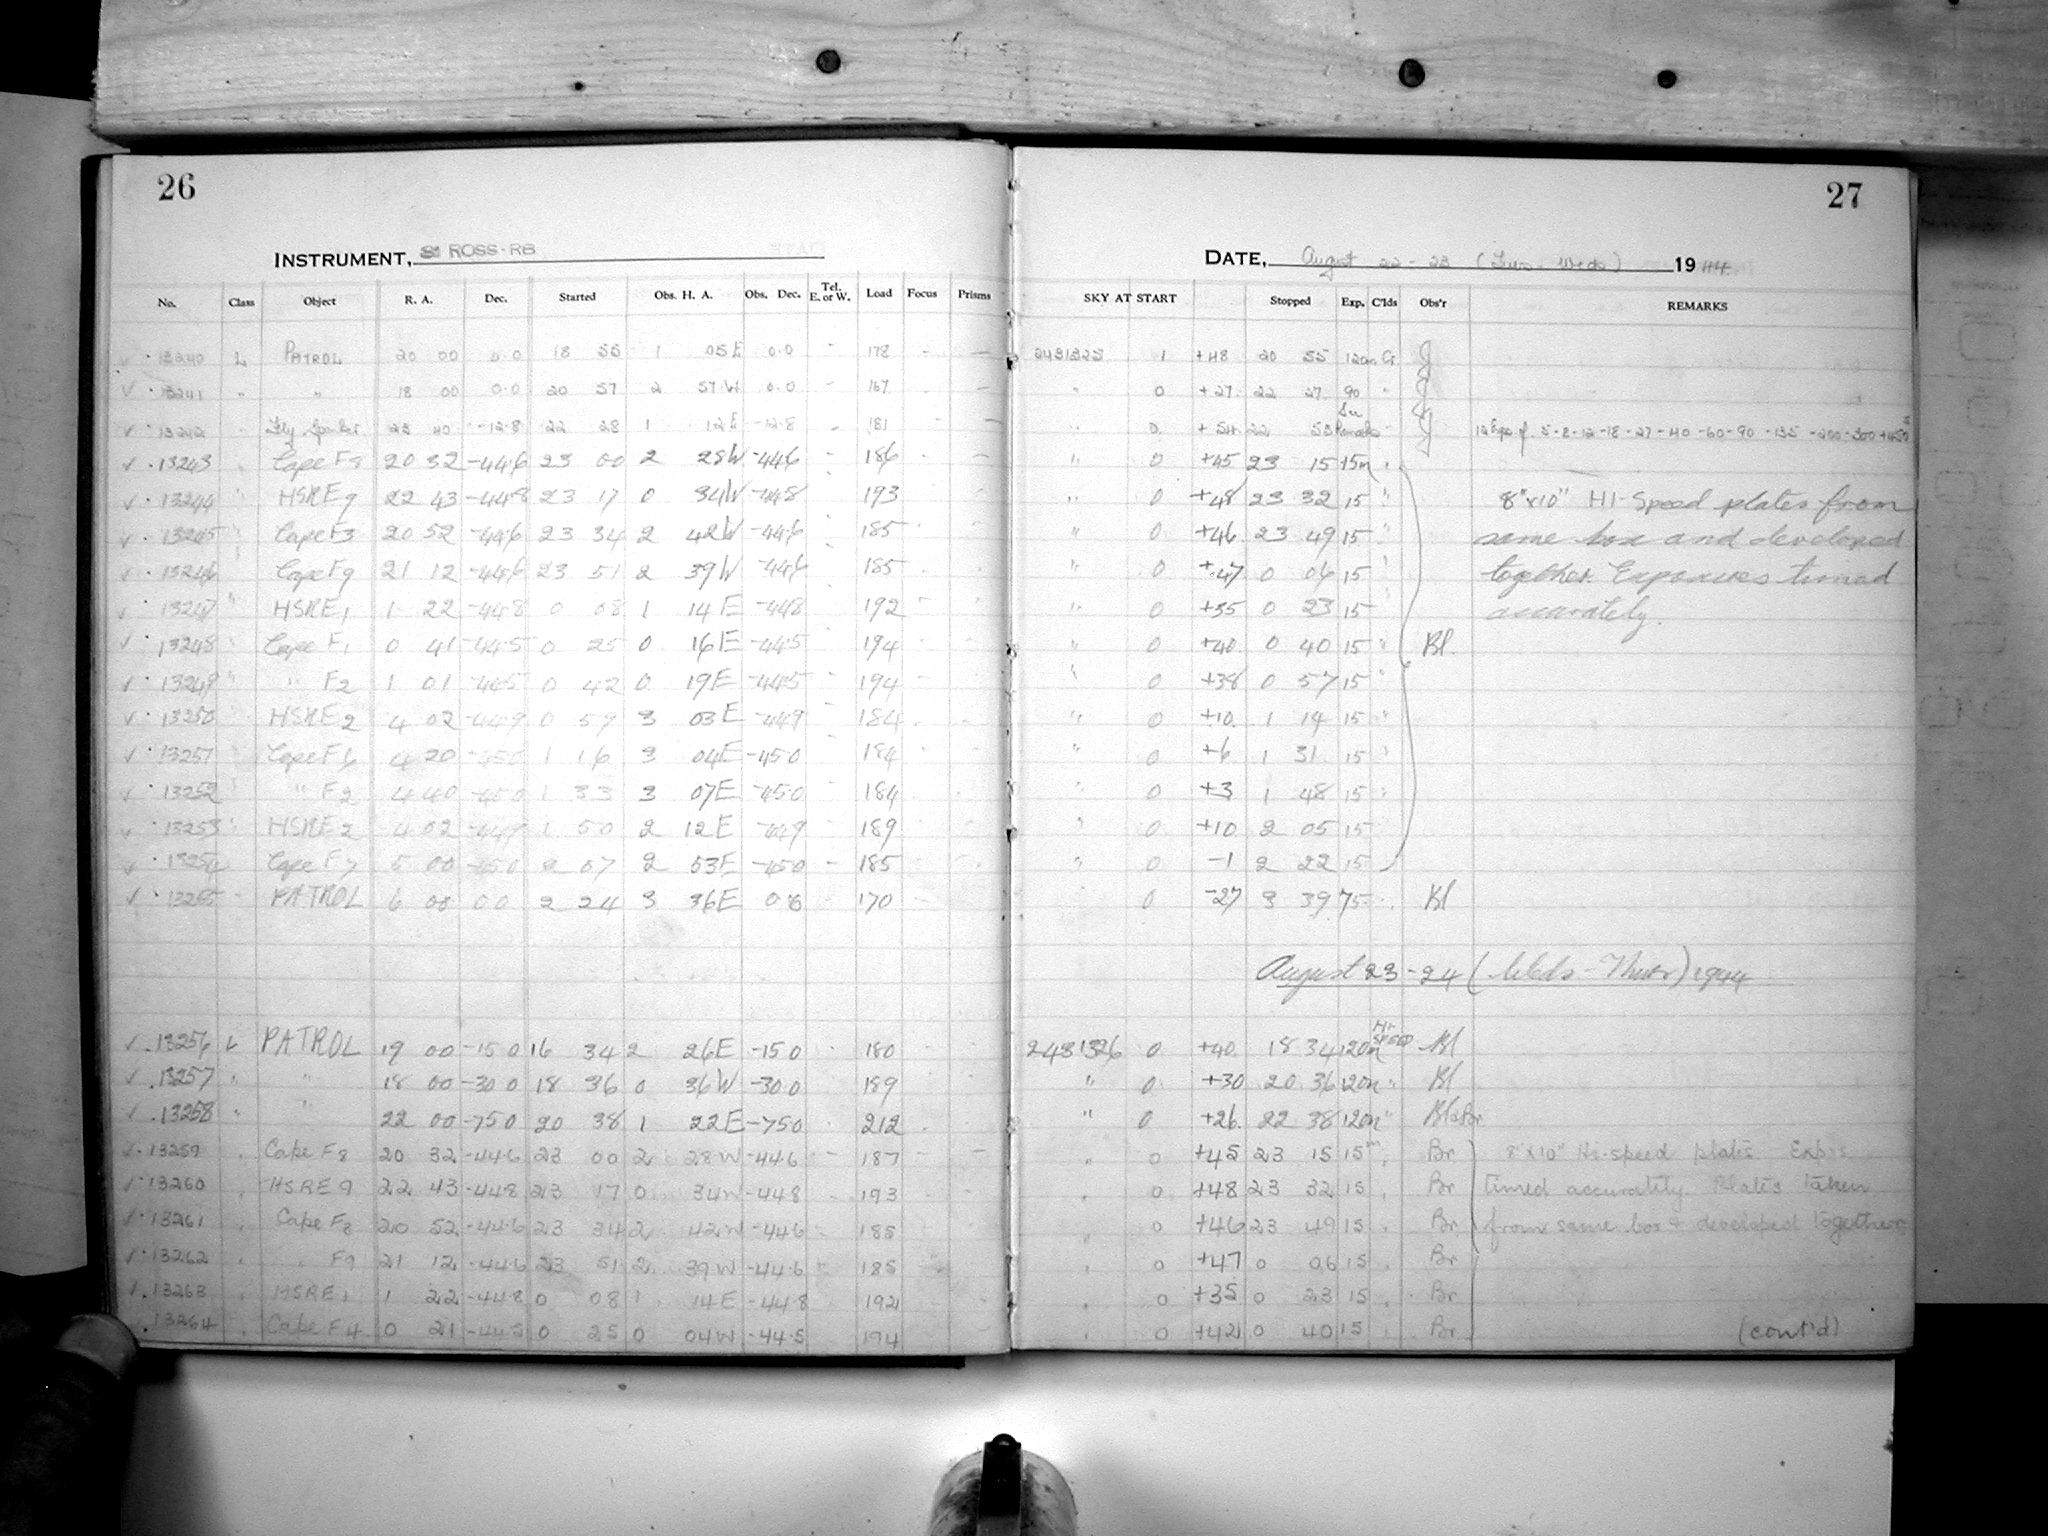 26
27
INSTRUMENT, ROSS-RB
DATE, August 22-23 (Tues-Weds) 1944
No. Class Object R. A. Dec. Started Obs. H. A. Obs. Dec. Tel. E. or W. Load Focus Prisms SKY AT START Stopped Exp. C'lds Obs'r REMARKS
13240 L PATROL 20 00 0.0 18 55 1 05E 0.0 178 2431325 1 +48 20 55 120m
13241 " 18 00 0.0 20 57 2 57W 0.0 167 " 0 +27 22 27 90 "
13242 23 40 -12.8 22 28 1 12E -12.8 181 " 0 +54 22 58 12 Exps of 5-8-12-18-27-40-60-90-135-200-300+450s
13243 Cape F8 20 32 -44.6 23 00 2 28W -44.6 186 " 0 +45 23 15 15m
13244 " HSRE9 22 43 -44.8 23 17 0 34W -44.8 193 " 0 +48 23 32 15 " 8"x10" HI-Speed plates from
13245 " Cape F3 20 52 -44.6 23 34 2 42W -44.6 185 " 0 +46 23 49 15 " same box and developed
13246 Cape F9 21 12 -44.6 23 51 2 39W -44.6 185 " 0 +47 0 06 15 " together. Exposures timed
13247 " HSRE1 1 22 -44.8 0 08 1 14E -44.8 192 " 0 +35 0 23 15 accurately.
13248 Cape F1 0 41 -44.5 0 25 0 16E -44.5 194 " 0 +40 0 40 15 " Bl.
13249 " " F2 1 01 -44.5 0 42 0 19E -44.5 194 " 0 +38 0 57 15 "
13250 HSRE2 4 02 -44.9 0 59 3 03E -44.9 184 " 0 +10 1 14 15 "
13251 Cape F6 4 20 -45.0 1 16 3 04E -45.0 184 " 0 +6 1 31 15 "
13252 " F2 4 40 -45.0 1 33 3 07E -45.0 184 " 0 +3 1 48 15 "
13253 HSRE2 4 02 -44.9 1 50 2 12E -44.9 189 " 0 +10 2 05 15
13254 Cape F7 5 00 -45.0 2 07 2 53E -45.0 185 " 0 -1 2 22 15
13255 PATROL 6 00 0.0 2 24 3 36E 0.0 170 0 -27 3 39 75 Bl
August 23-24 (Weds-Thur) 1944
13256 L PATROL 19 00 -15.0 16 34 2 26E -15.0 180 2431326 0 +40 18 34 120m HI-SPEED Bl
13257 " " 18 00 -30.0 18 36 0 36W -30.0 189 " 0 +30 20 36 120m " Bl
13258 " " 22 00 -75.0 20 38 1 22E -75.0 212 " 0 +26 22 38 120m " Bl&Br
13259 Cape F8 20 32 -44.6 23 00 2 28W -44.6 187 " 0 +45 23 15 15m Br 8"x10" Hi-speed plates Exp's
13260 HSRE9 22 43 -44.8 23 17 0 34W -44.8 193 " 0 +48 23 32 15 Br timed accurately. Plates taken
13261 Cape F3 20 52 -44.6 23 34 2 42W -44.6 185 " 0 +46 23 49 15 Br from same box & developed together.
13262 " F9 21 12 -44.6 23 51 2 39W -44.6 185 " 0 +47 0 06 15 Br
13263 HSRE1 1 22 -44.8 0 08 1 14E -44.8 192 " 0 +35 0 23 15 Br
13264 Cape F4 0 21 -44.5 0 25 0 04W -44.5 194 " 0 +42 0 40 15 Br (cont'd)